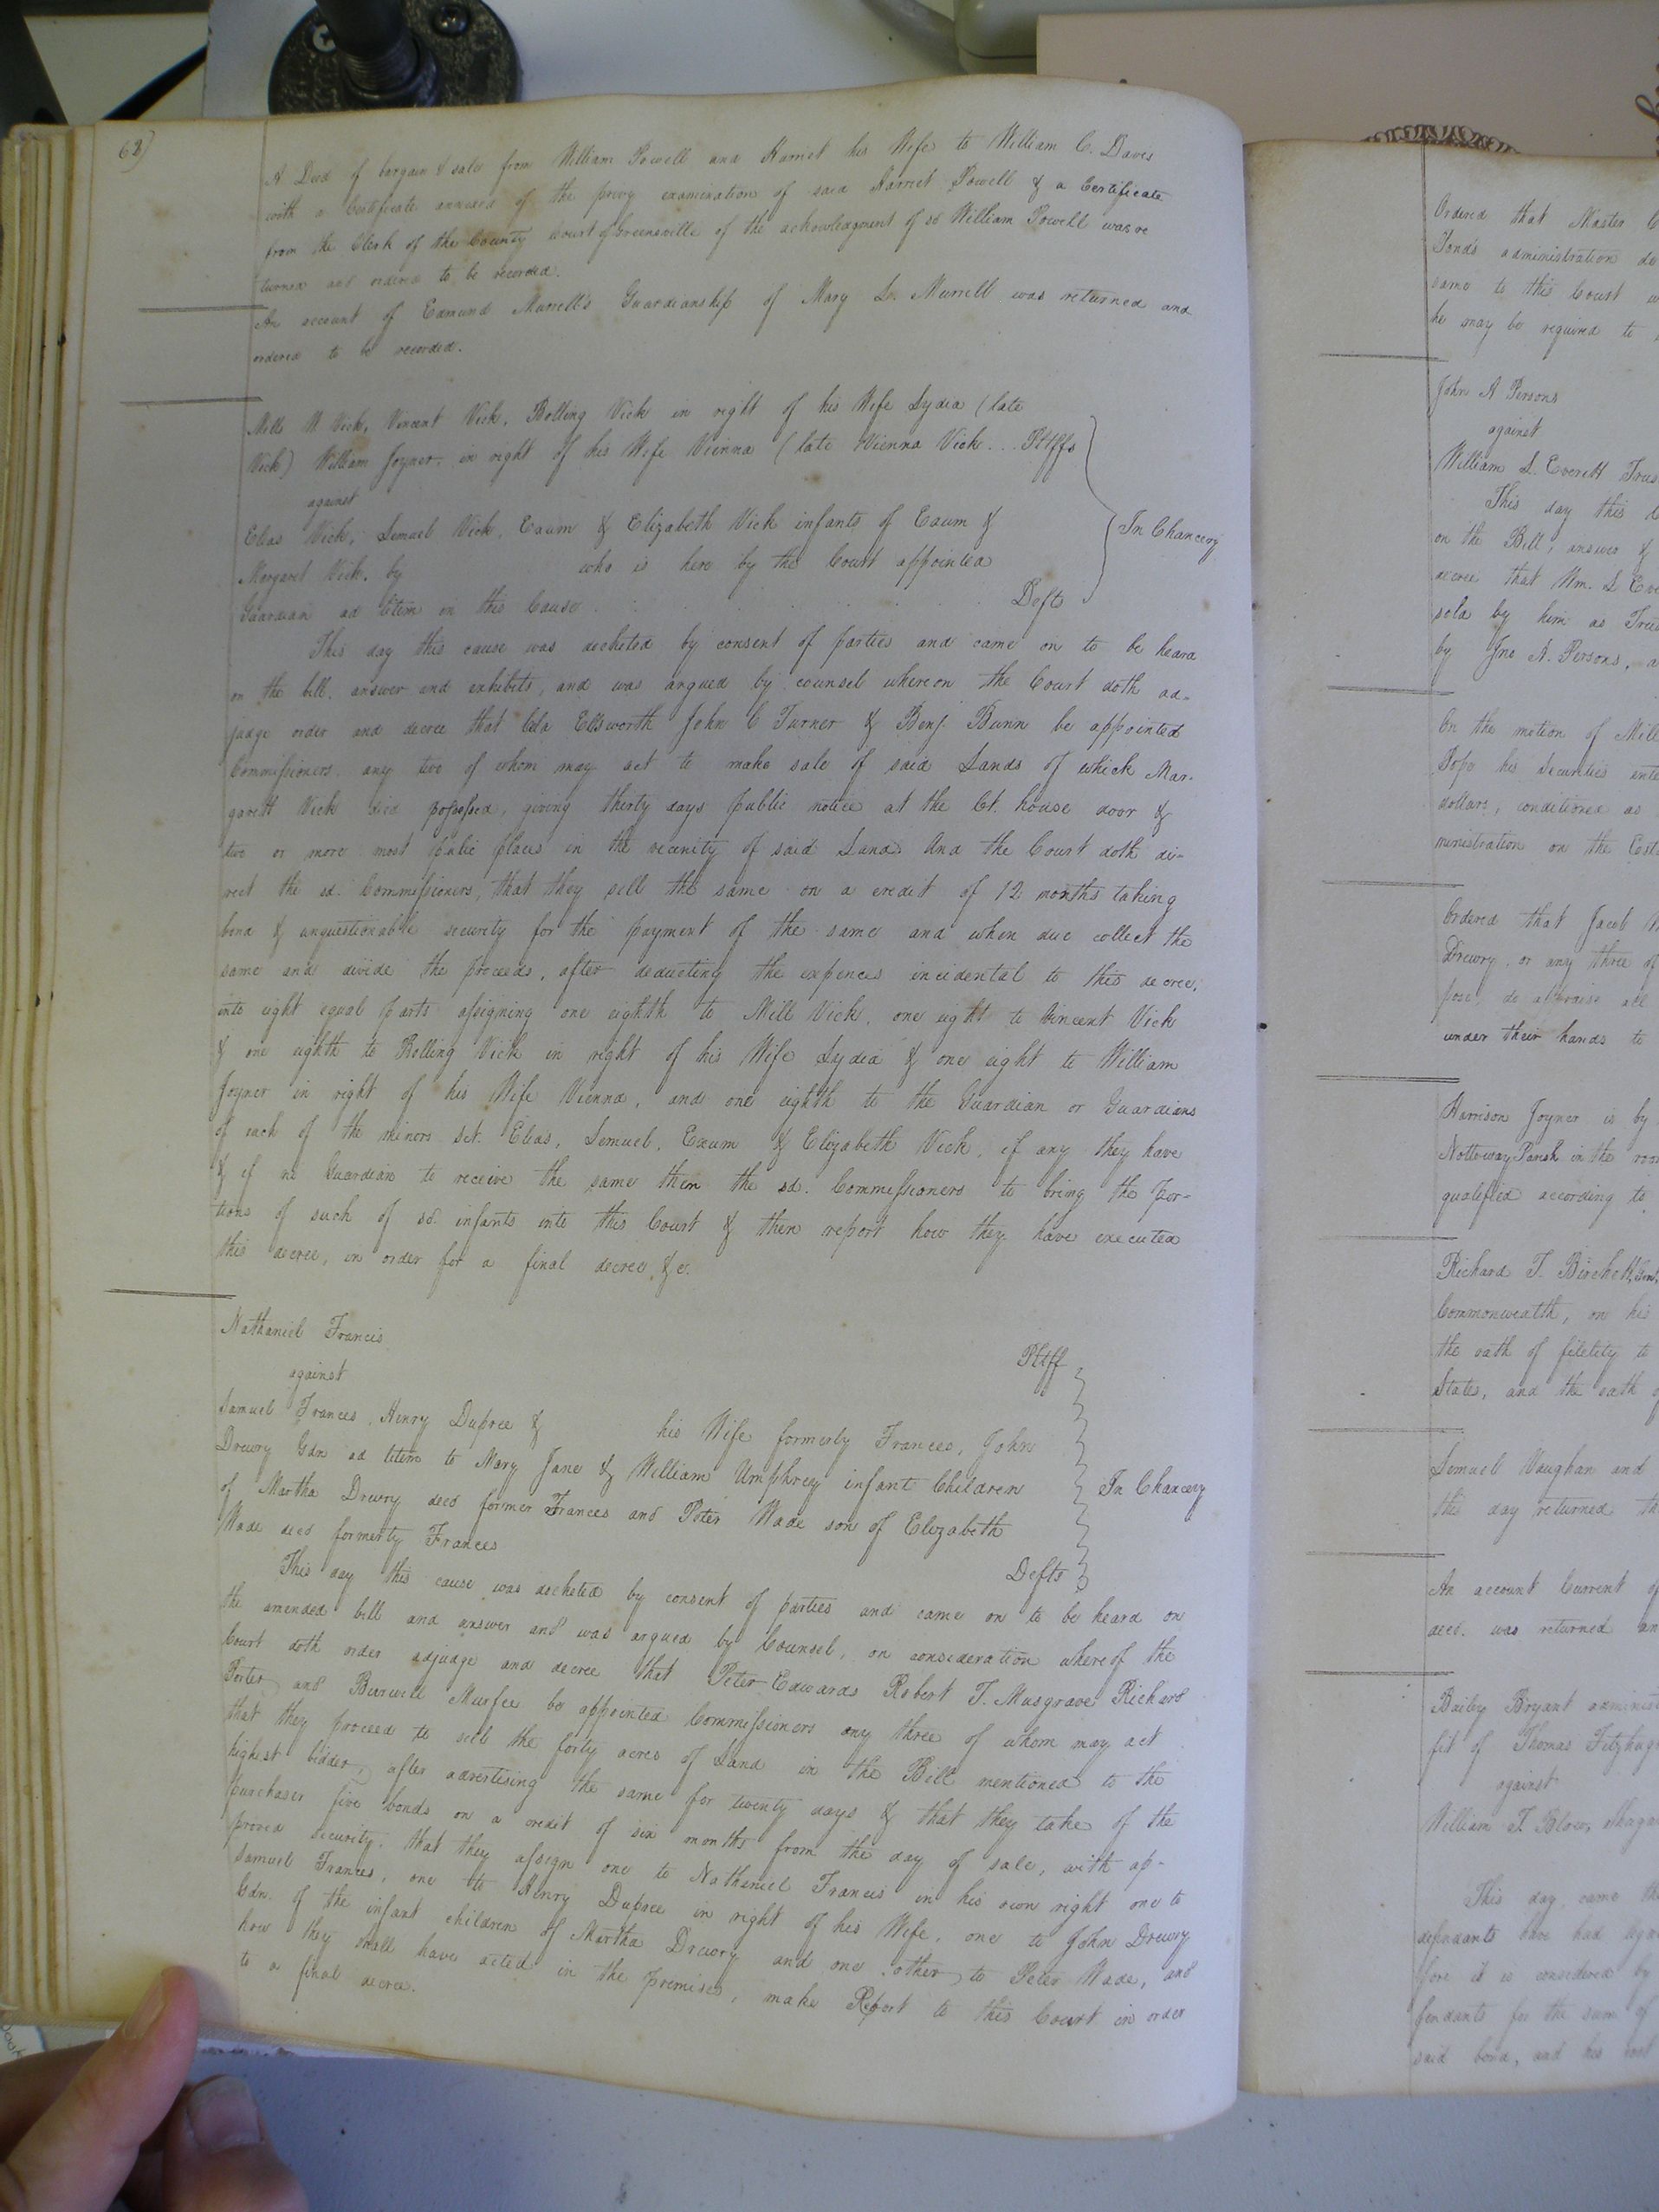 62)
A Deed of bargain & sale from William Powell and Harriet his Wife to William C. Davis
with a Certificate annexed of the privy examination of said Harriet Powell & a Certificate
from the Clerk of the County Court of Greensville of the acknowledgment of sd William Powell was re
turned and ordered to be recorded.
An account of Edmund Murrell's Guardianship of Mary L. Murrell was returned and
ordered to be recorded.
Mills W. Vick, Vincent Vick, Bolling Vick in right of his Wife Lydia (late
Vick) William Joyner, in right of his Wife Vienna (late Vienna Vick... Pltffs
against
Elias Vick, Lemuel Vick, Exum & Elizabeth Vick infants of Exum &
In Chancery
Margaret Vick, by who is here by the Court appointed
Guardian ad litem in this Cause Defts
This day this cause was docketed by consent of parties and came on to be heard
on the bill, answer and exhibits, and was argued by counsel whereon the Court doth ad-
judge order and decree that Cola Ellsworth John C Turner & Benj. Bunn be appointed
Commissioners any two of whom may act to make sale of said Lands of which Mar-
garett Vick died possessed, giving thirty days public notice at the Ct. house door &
two or more most public places in the vicinity of said Land. And the Court doth di-
rect the sd. Commissioners, that they sell the same on a credit of 12 months taking
bond & unquestionable security for the payment of the same and when due collect the
same and divide the proceeds, after deducting the expences incidental to this decree,
into eight equal parts assigning one eighth to Mill Vick, one eight to Vincent Vick
& one eighth to Bolling Vick in right of his Wife Lydia & one eight to William
Joyner in right of his Wife Vienna, and one eighth to the Guardian or Guardians
of each of the minors sct. Elias, Lemuel, Exum & Elizabeth Vick, if any they have
& if no Guardian to receive the same then the sd. Commissioners to bring the por-
tions of such of sd. infants into this Court & then report how they have executed
this decree, in order for a final decree &c.
Nathaniel Francis
Pltff
against
Samuel Frances, Henry Dupree & his Wife formerly Frances, John
Drewry Gdn ad litem to Mary Jane & William Umphrey infant Children
In Chancery
of Martha Drewry decd former Frances and Peter Wade son of Elizabeth
Wade decd formerly Frances
Defts
This day this cause was docketed by consent of parties and came on to be heard on
the amended bill and answer and was argued by Counsel, on consideration whereof the
Court doth order adjudge and decree that Peter Edwards Robert T. Musgrave Richard
Porter and Burwell Murfee be appointed Commissioners any three of whom may act
that they proceed to sell the forty acres of Land in the Bill mentioned to the
highest bidder, after advertising the same for twenty days & that they take of the
purchaser five bonds on a credit of six months from the day of sale, with ap-
proved security. that they assign one to Nathaniel Francis in his own right one to
Samuel Frances, one to Henry Dupree in right of his Wife, one to John Drewry
Gdn. of the infant children of Martha Drewry and one other to Peter Wade, and
how they shall have acted in the premises, make Report to this Court in order
to a final decree.
Ordered that Master
administration
same to this Court
he may be required to
John A Persons
against
William L. Everett Trus
This day this
on the Bill, answer &
decree that Wm. L Eve
sold by him as Trus
by Jno A. Persons, a
On the motion of Mill
his Securities inte
dollars, conditioned as
ministration on the Est
Ordered that Jacob
Drewry or any three of
pose, do appraise all
under their hands to
Harrison Joyner is by
Nottoway Parish in the room
qualified according to
Richard T. Birchett, Gent.
Commonwealth, on his
the oath of fidelity to
State, and the oath
Lemuel Vaughan and
this day returned th
An account Current of
decd. was returned an
Bailey Bryant administ
fit of Thomas Fitzhug
against
William T. Blow,
This day came th
defendants have had
fore it is considered by
fendants for the sum of
said bond, and his cost